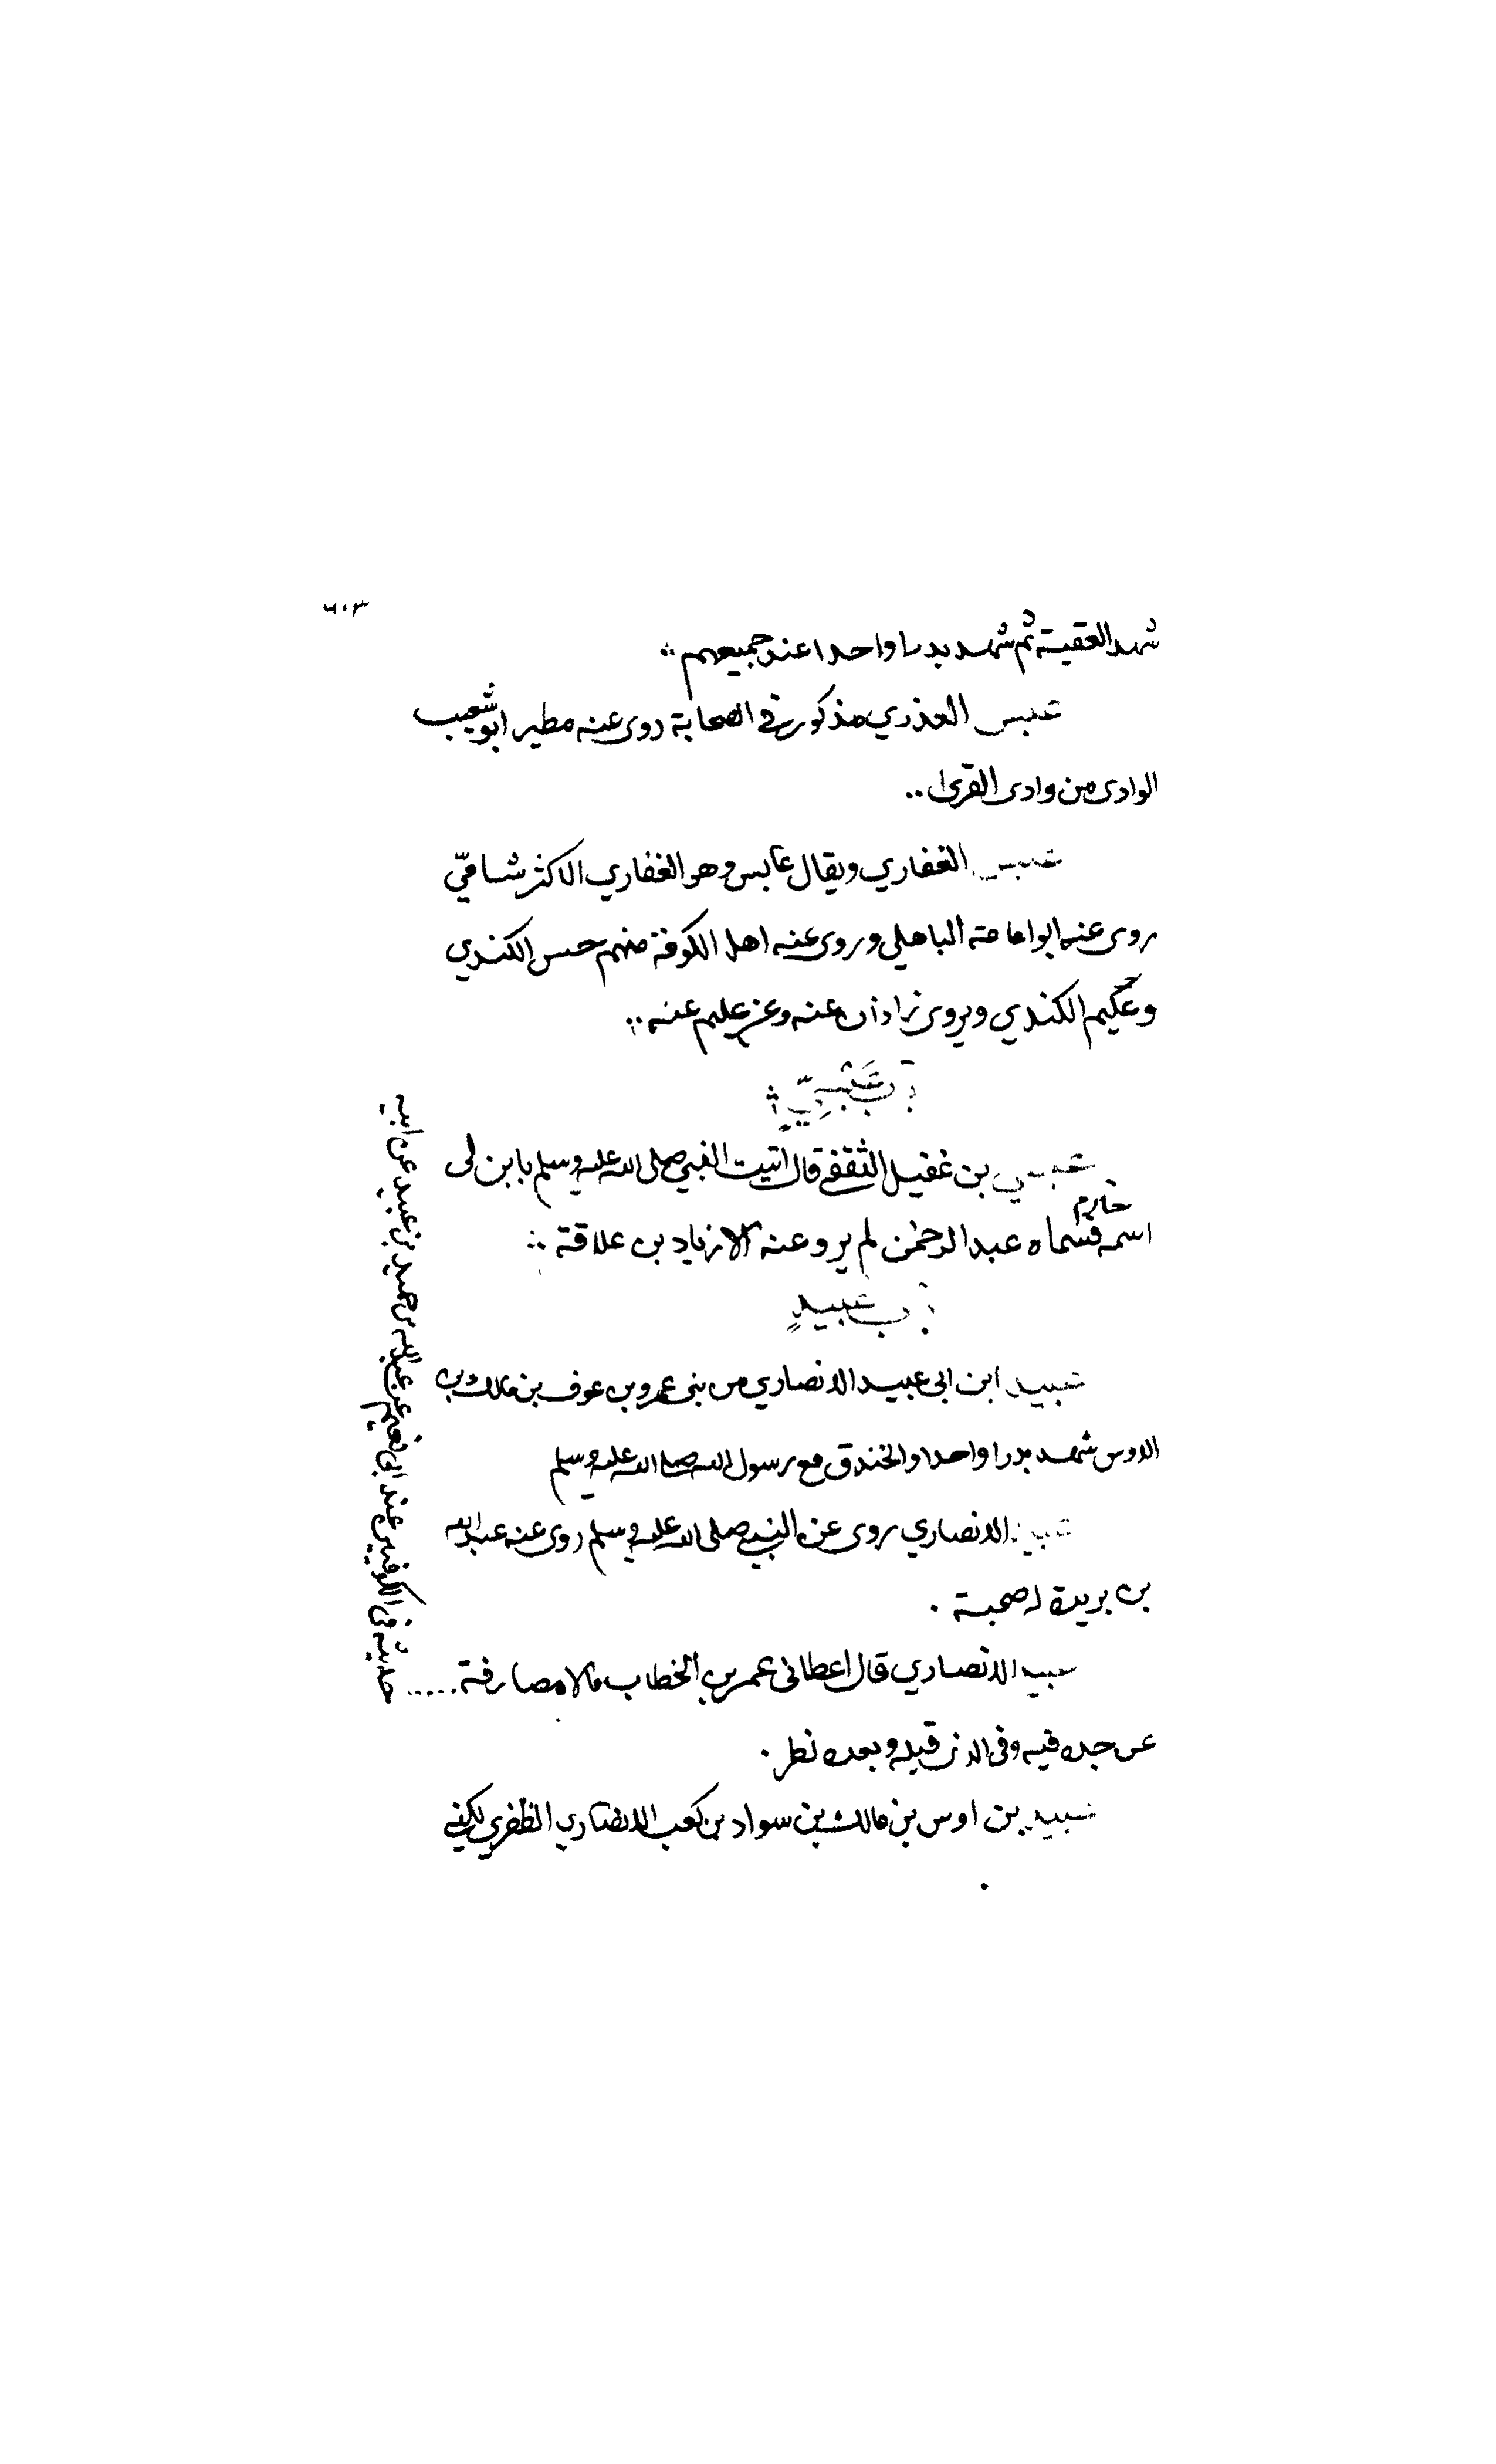 ٦٠٣
شهد العقبة ثم شهد بدرا واحدا عند جميعهم ..
عبس العذري مذكور في الصحابة روى عنه مطير ابو شعيب
الوادى من وادى القرى ..
عبس الغفاري ويقال عابس وهو الغفاري الاكثر شامي
روى عنه ابو امامة الباهلي وروى عنه اهل الكوفة منهم حنش الكندي
وعكيم الكندي ويروى زاذان عنه وعن عليم عنه ..
باب
بن غفيل الثقفي قال اتيت النبي صلى الله عليه وسلم بابن لى
حازم
اسمه فسماه عبد الرحمٰن لم يرو عنه الا زياد بن علاقة ..
باب عبيدٍ
عبيد ابن ابى عبيد الانصاري من بنى عمرو بن عوف بن مالك بن
الاوس شهد بدرا واحدا والخندق مع رسول الله صلى الله عليه وسلم
عبيد الانصاري روى عن النبي صلى الله عليه وسلم روى عنه عبد الله
بن بريدة له صحبة .
عبيد الانصاري قال اعطانى عمر بن الخطاب مالا مضاربة .....
حديثه فى الكوفيين عند ابى نعيم عن عبد الله بن حميد بن عبيد عن ابيه
عن جده فيه وفى الذى قبله وبعده نظر .
عبيد بن اوس بن مالك بن سواد بن كعب الانصاري الظفري يكنى